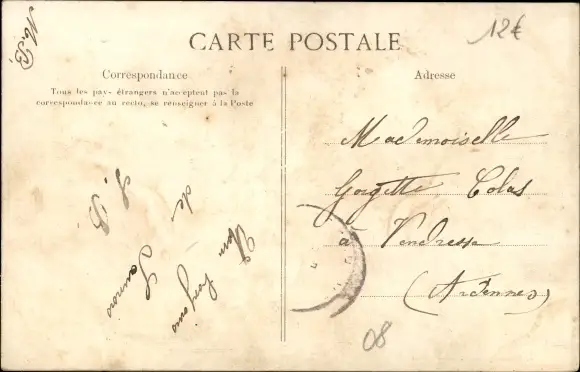 M. B.
12€
CARTE POSTALE
Correspondance
Tous les pays étrangers n'acceptent pas la
correspondance au recto, se renseigner à la Poste
Adresse
Mademoiselle
Gorgette Colas
à Vendresse
(Ardennes)
08
de